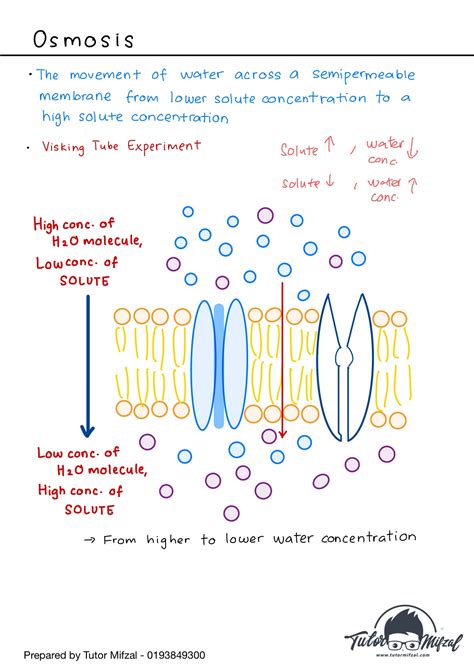 Osmosis
• The movement of water across a semipermeable
membrane from lower solute concentration to a
high solute concentration
• Visking Tube Experiment
Solute ↑ , water ↓
conc.
Solute ↓ , water ↑
conc.
High conc. of
H2O molecule,
Low conc. of
SOLUTE
Low conc. of
H2O molecule,
High conc. of
SOLUTE
→ From higher to lower water concentration
Tutor Mifzal
www.tutormifzal.com
Prepared by Tutor Mifzal - 0193849300